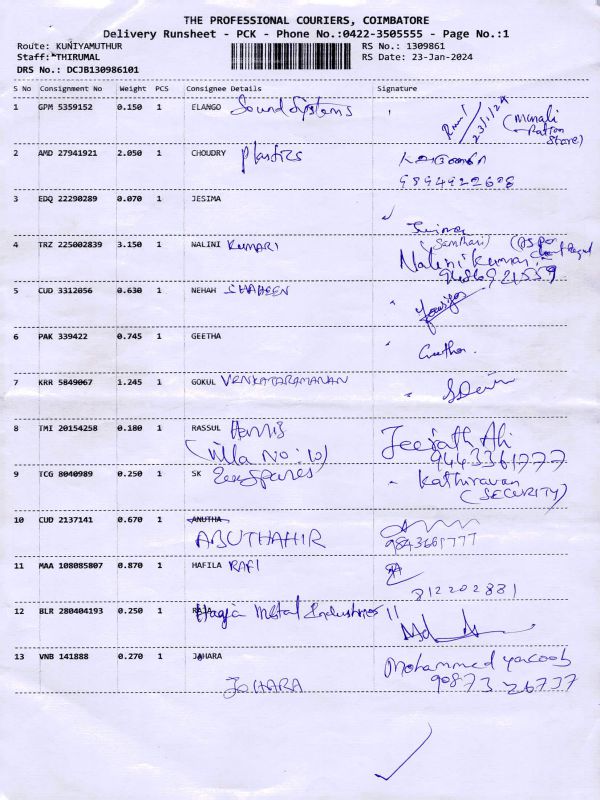 THE PROFESSIONAL COURIERS, COIMBATORE
Delivery Runsheet - PCK - Phone No.:0422-3505555 - Page No.:1
Route: KUNIYAMUTHUR RS No.: 1309861
Staff: THIRUMAL RS Date: 23-Jan-2024
DRS No.: DCJB130986101
S No Consignment No Weight PCS Consignee Details Signature
1 GPM 5359152 0.150 1 ELANGO Sound Systems 23/1/24 (Manali
Cotton
Store)
2 AMD 27941921 2.050 1 CHOUDRY Plastics
9894922608
3 EDQ 22290289 0.070 1 JESIMA
4 TRZ 225002839 3.150 1 NALINI Kumari Nalini kumari
9486921559
5 CUD 3312056 0.630 1 NEHAH SHAHEEN
6 PAK 339422 0.745 1 GEETHA Geetha.
7 KRR 5849067 1.245 1 GOKUL VENKATARAMANAN
8 TMI 20154258 0.180 1 RASSUL Harris Jeejath Ali
(Villa No: 10) 9443361777
9 TCG 8040989 0.250 1 SK Spares Kathiravan
(SECURITY)
10 CUD 2137141 0.670 1 ANUTHA
ABUTHAHIR 9843661777
11 MAA 108085807 0.870 1 HAFILA RAFI
812202881
12 BLR 280404193 0.250 1 Hagja Metal Industries
13 VNB 141888 0.270 1 JAHARA Mohammed yacoob
JOHARA 90873 26737